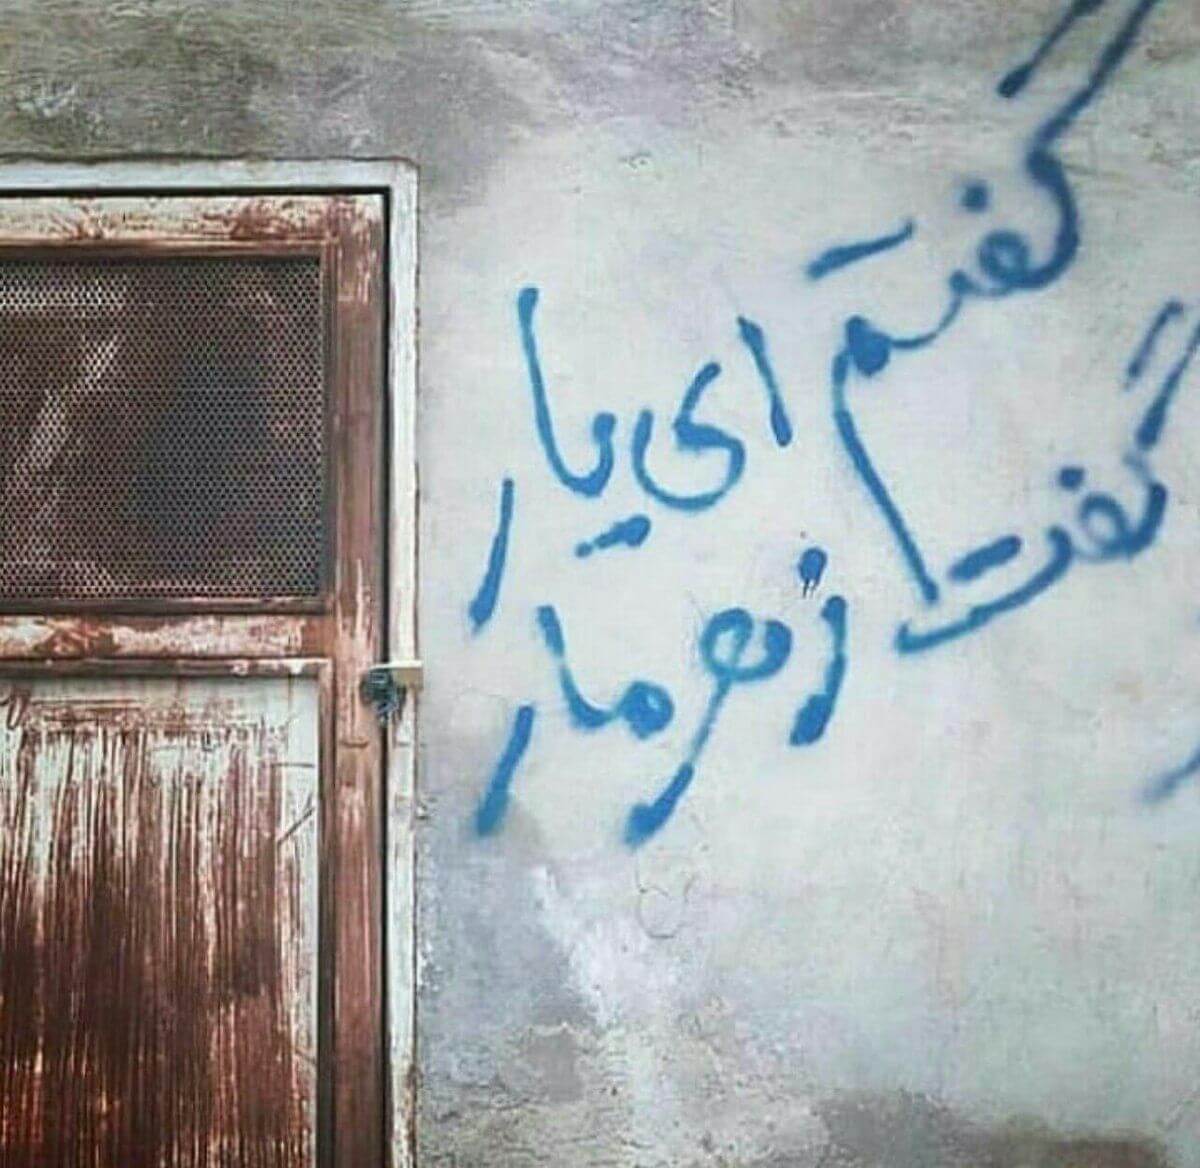 گفتم ای یار
گفت زهر مار